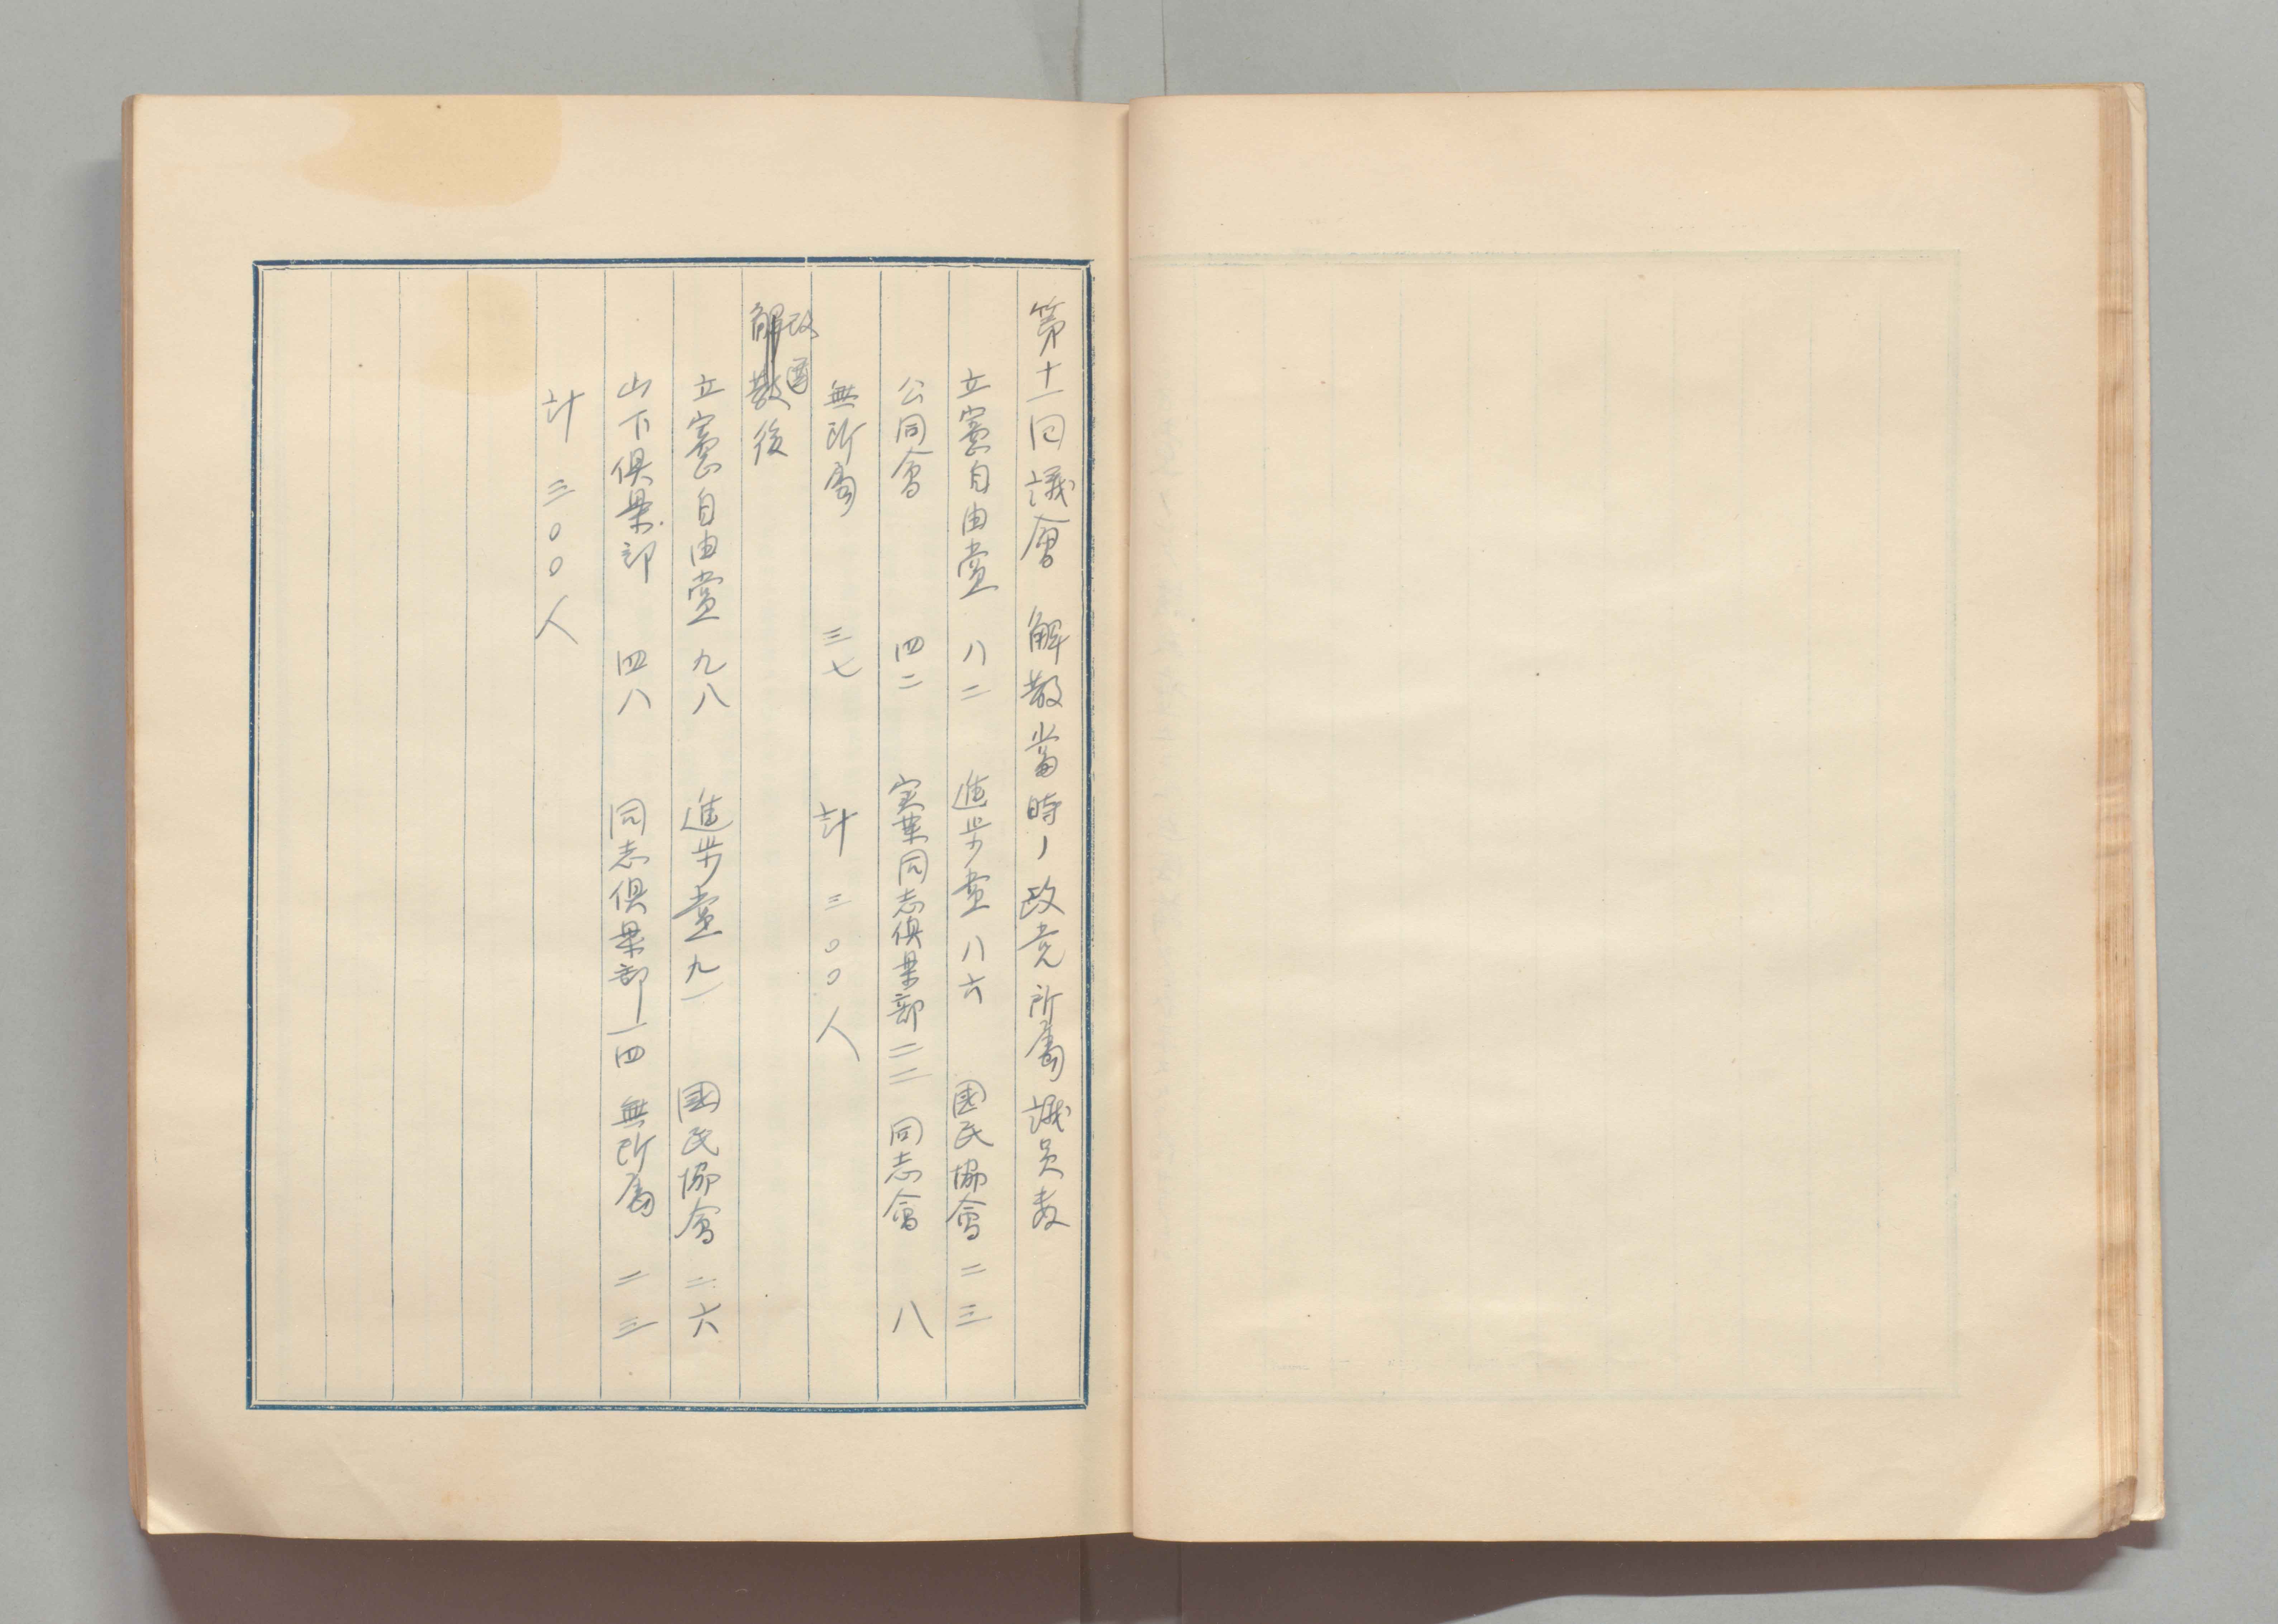 第十一回議會　解散當時ノ政党所属議員数
立憲自由党　八二　進歩党　八六　國民協會　二三
公同會　四二　実業同志倶楽部　二二　同志會　八
無所属　三七　計　三〇〇人
改選
解散後
立憲自由党　九八　進歩党　九一　國民協會　二六
山下倶楽部　四八　同志倶楽部　一四　無所属　二三
計　三〇〇人